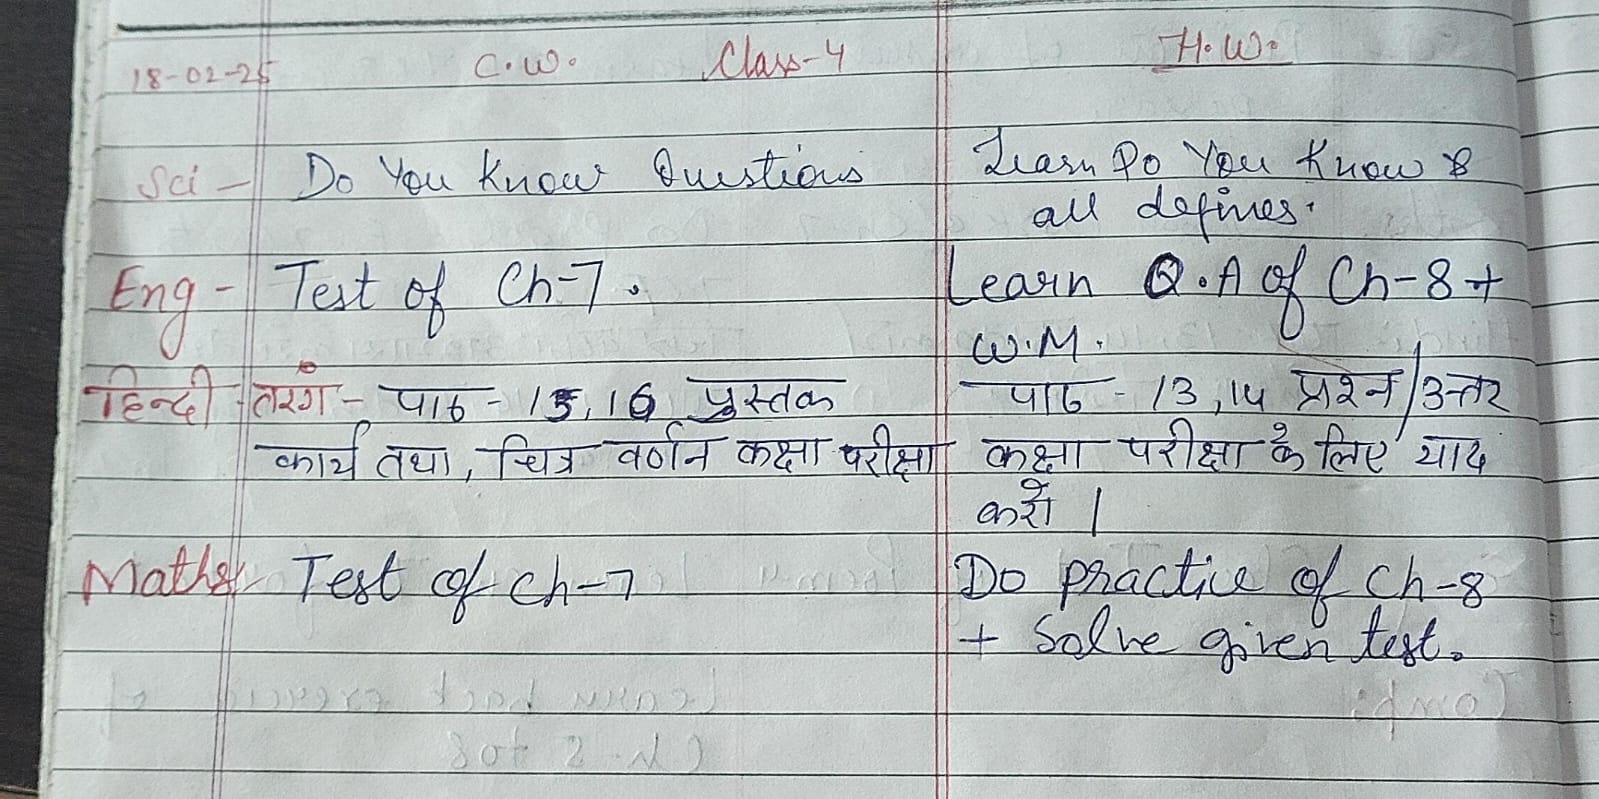 18-02-25 C.W. Class-4 H.W.
Sci - Do You Know Questions Learn Do You Know &
all defines.
Eng - Test of Ch-7. Learn Q.A of Ch-8 +
W.M.
हिन्दी - तरंग - पाठ - 15, 16 पुस्तक पाठ - 13, 14 प्रश्न/उत्तर
कार्य तथा, चित्र वर्णन कक्षा परीक्षा कक्षा परीक्षा के लिए याद
करो।
Maths Test of ch-7 Do practice of Ch-8
+ Solve given test.